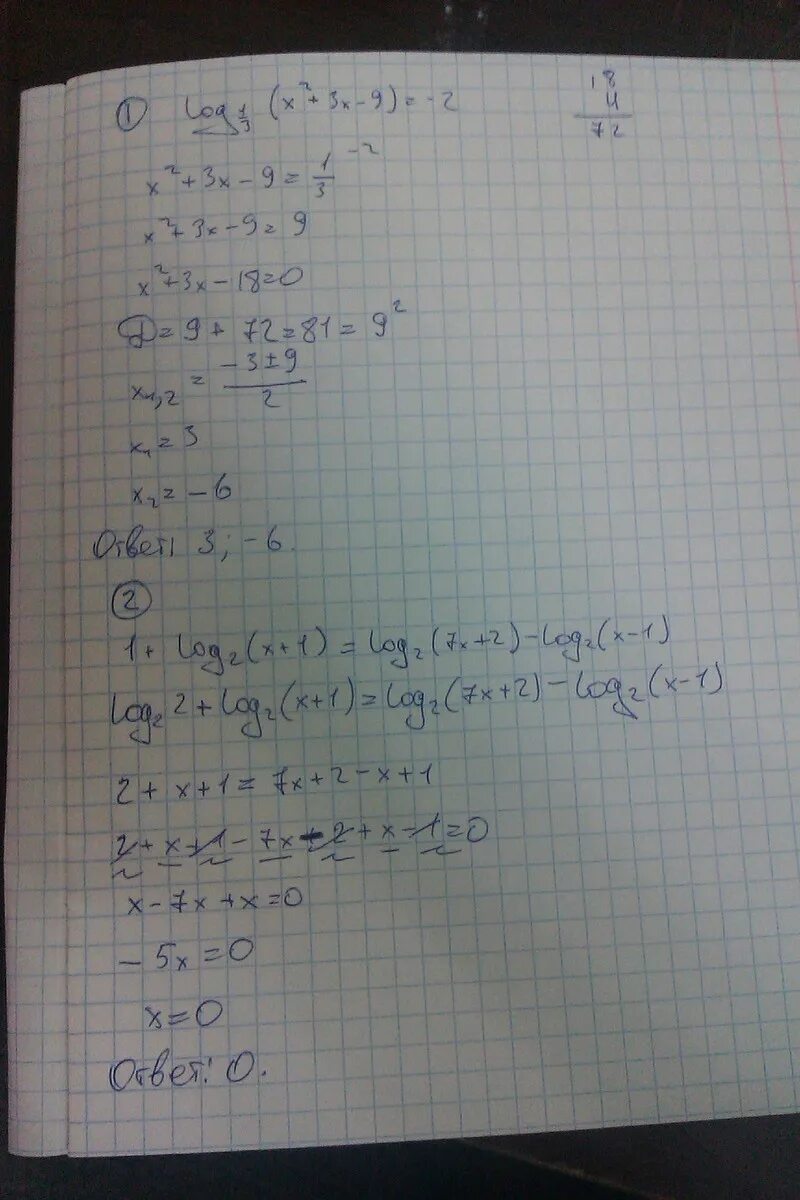 ① log_{1/3} (x² + 3x - 9) = -2
18
4
72
x² + 3x - 9 = 1/3 ⁻²
x² + 3x - 9 = 9
x² + 3x - 18 = 0
D = 9 + 72 = 81 = 9²
x₁,₂ = (-3 ± 9)/2
x₁ = 3
x₂ = -6
Ответ: 3; -6.
②
1 + log₂(x+1) = log₂(7x+2) - log₂(x-1)
log₂ 2 + log₂(x+1) = log₂(7x+2) - log₂(x-1)
2 + x + 1 = 7x + 2 - x + 1
2 + x + 1 - 7x - 2 + x - 1 = 0
x - 7x + x = 0
- 5x = 0
x = 0
Ответ: 0.